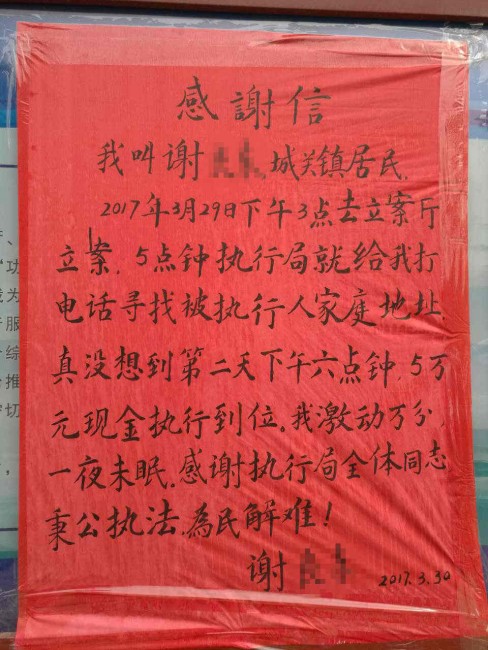 感謝信
我叫谢 城关镇居民.
2017年3月29日下午3点去立案厅
立案.5点钟执行局就给我打
电话寻找被执行人家庭地址,
真没想到第二天下午六点钟,5万
元现金执行到位。我激动万分,
一夜未眠.感谢执行局全体同志
秉公执法,為民解难!
谢
2017.3.30